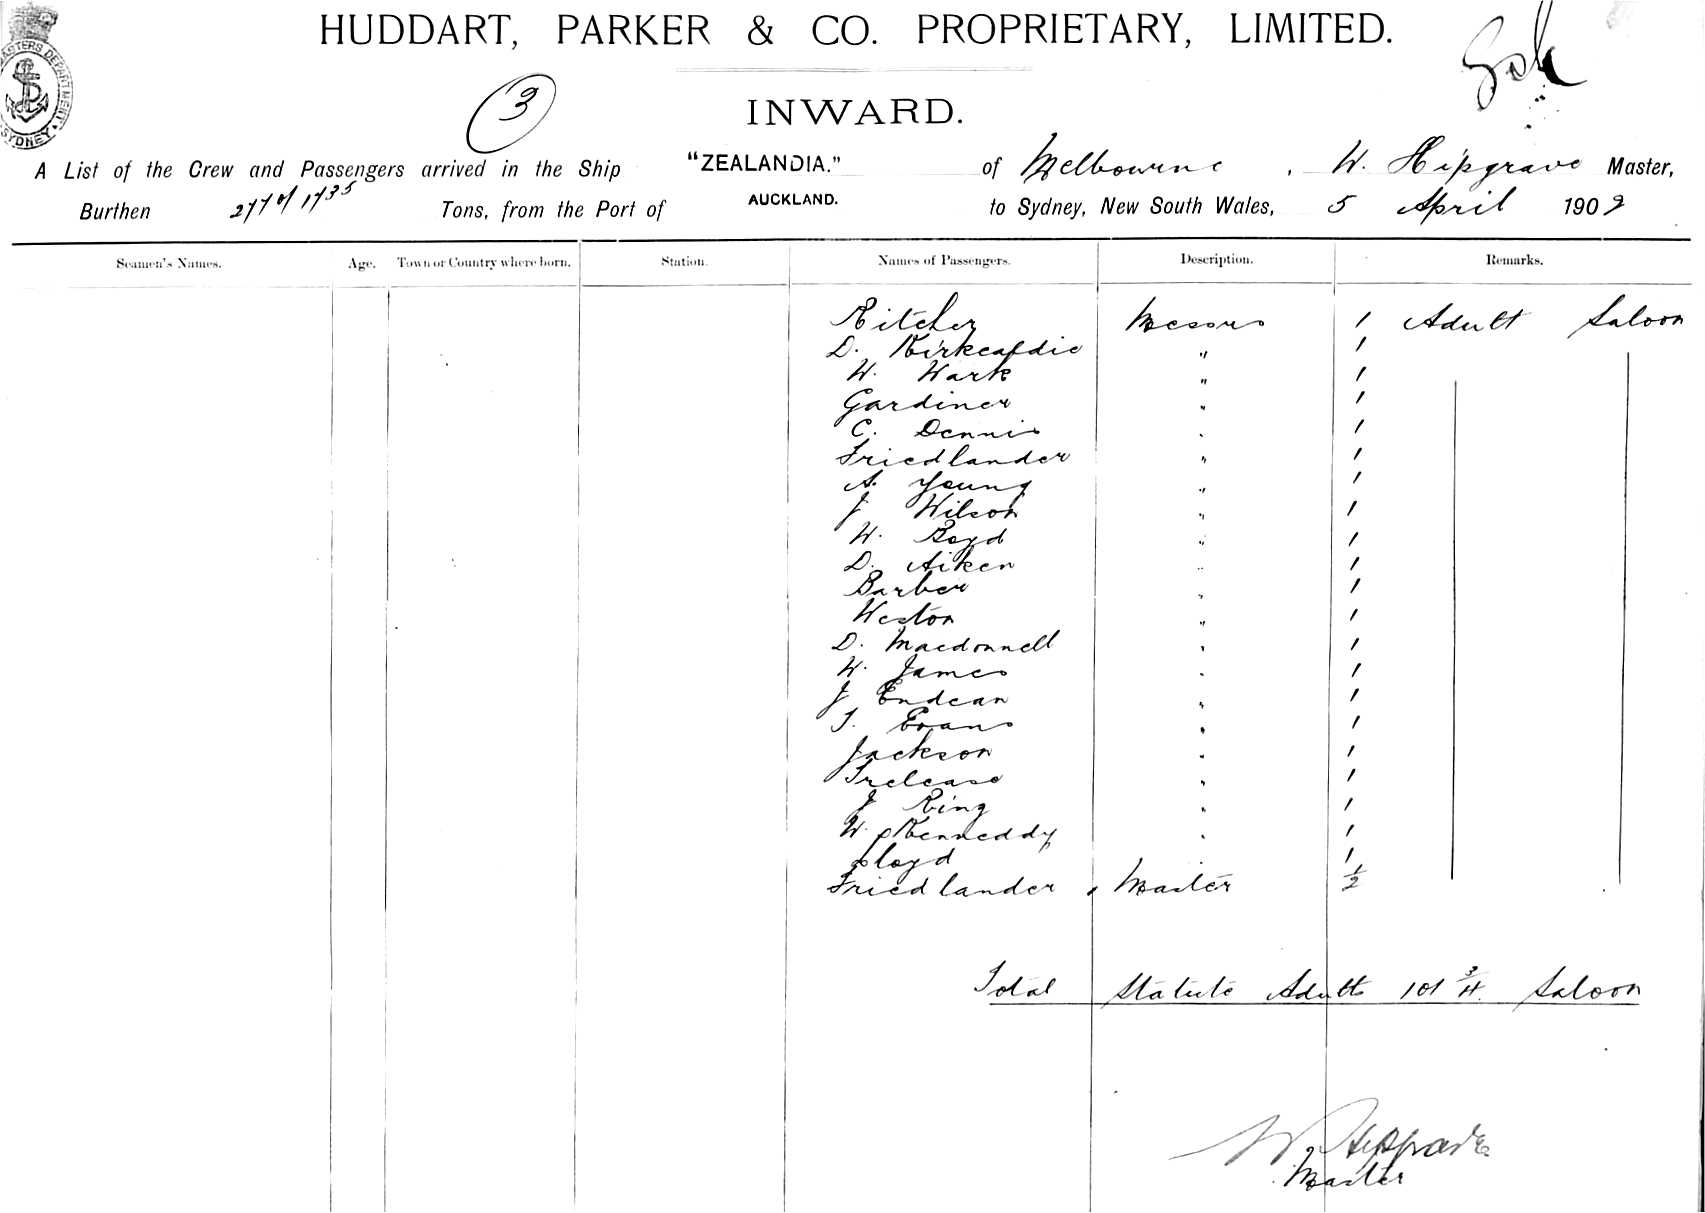 HUDDART, PARKER & CO. PROPRIETARY, LIMITED.
MASTERS DEPARTMENT
SYDNEY
3
INWARD.
A List of the Crew and Passengers arrived in the Ship "ZEALANDIA." of Melbourne, W. Hipgrave Master,
Burthen Tons, from the Port of AUCKLAND. to Sydney, New South Wales, 5 April 1902
Seamen's Names. Age. Town or Country where born. Station. Names of Passengers. Description. Remarks.
Ritcher Messrs 1 Adult Saloon
D. Kirkcaldie " 1
W. Wark " 1
Gardiner " 1
C. Dennis " 1
Friedlander " 1
A. Young " 1
J Wilson " 1
W. Boyd " 1
D. Aiken " 1
Barber " 1
Weston " 1
D. Macdonnell " 1
W. James " 1
J Endean " 1
T. Evans " 1
Jackson " 1
Trelease " 1
J King " 1
W. Kenneddy " 1
Lloyd " 1
Friedlander Master 1/2
Total Statute Adults 101 3/4 Saloon
W Hipgrave
Master